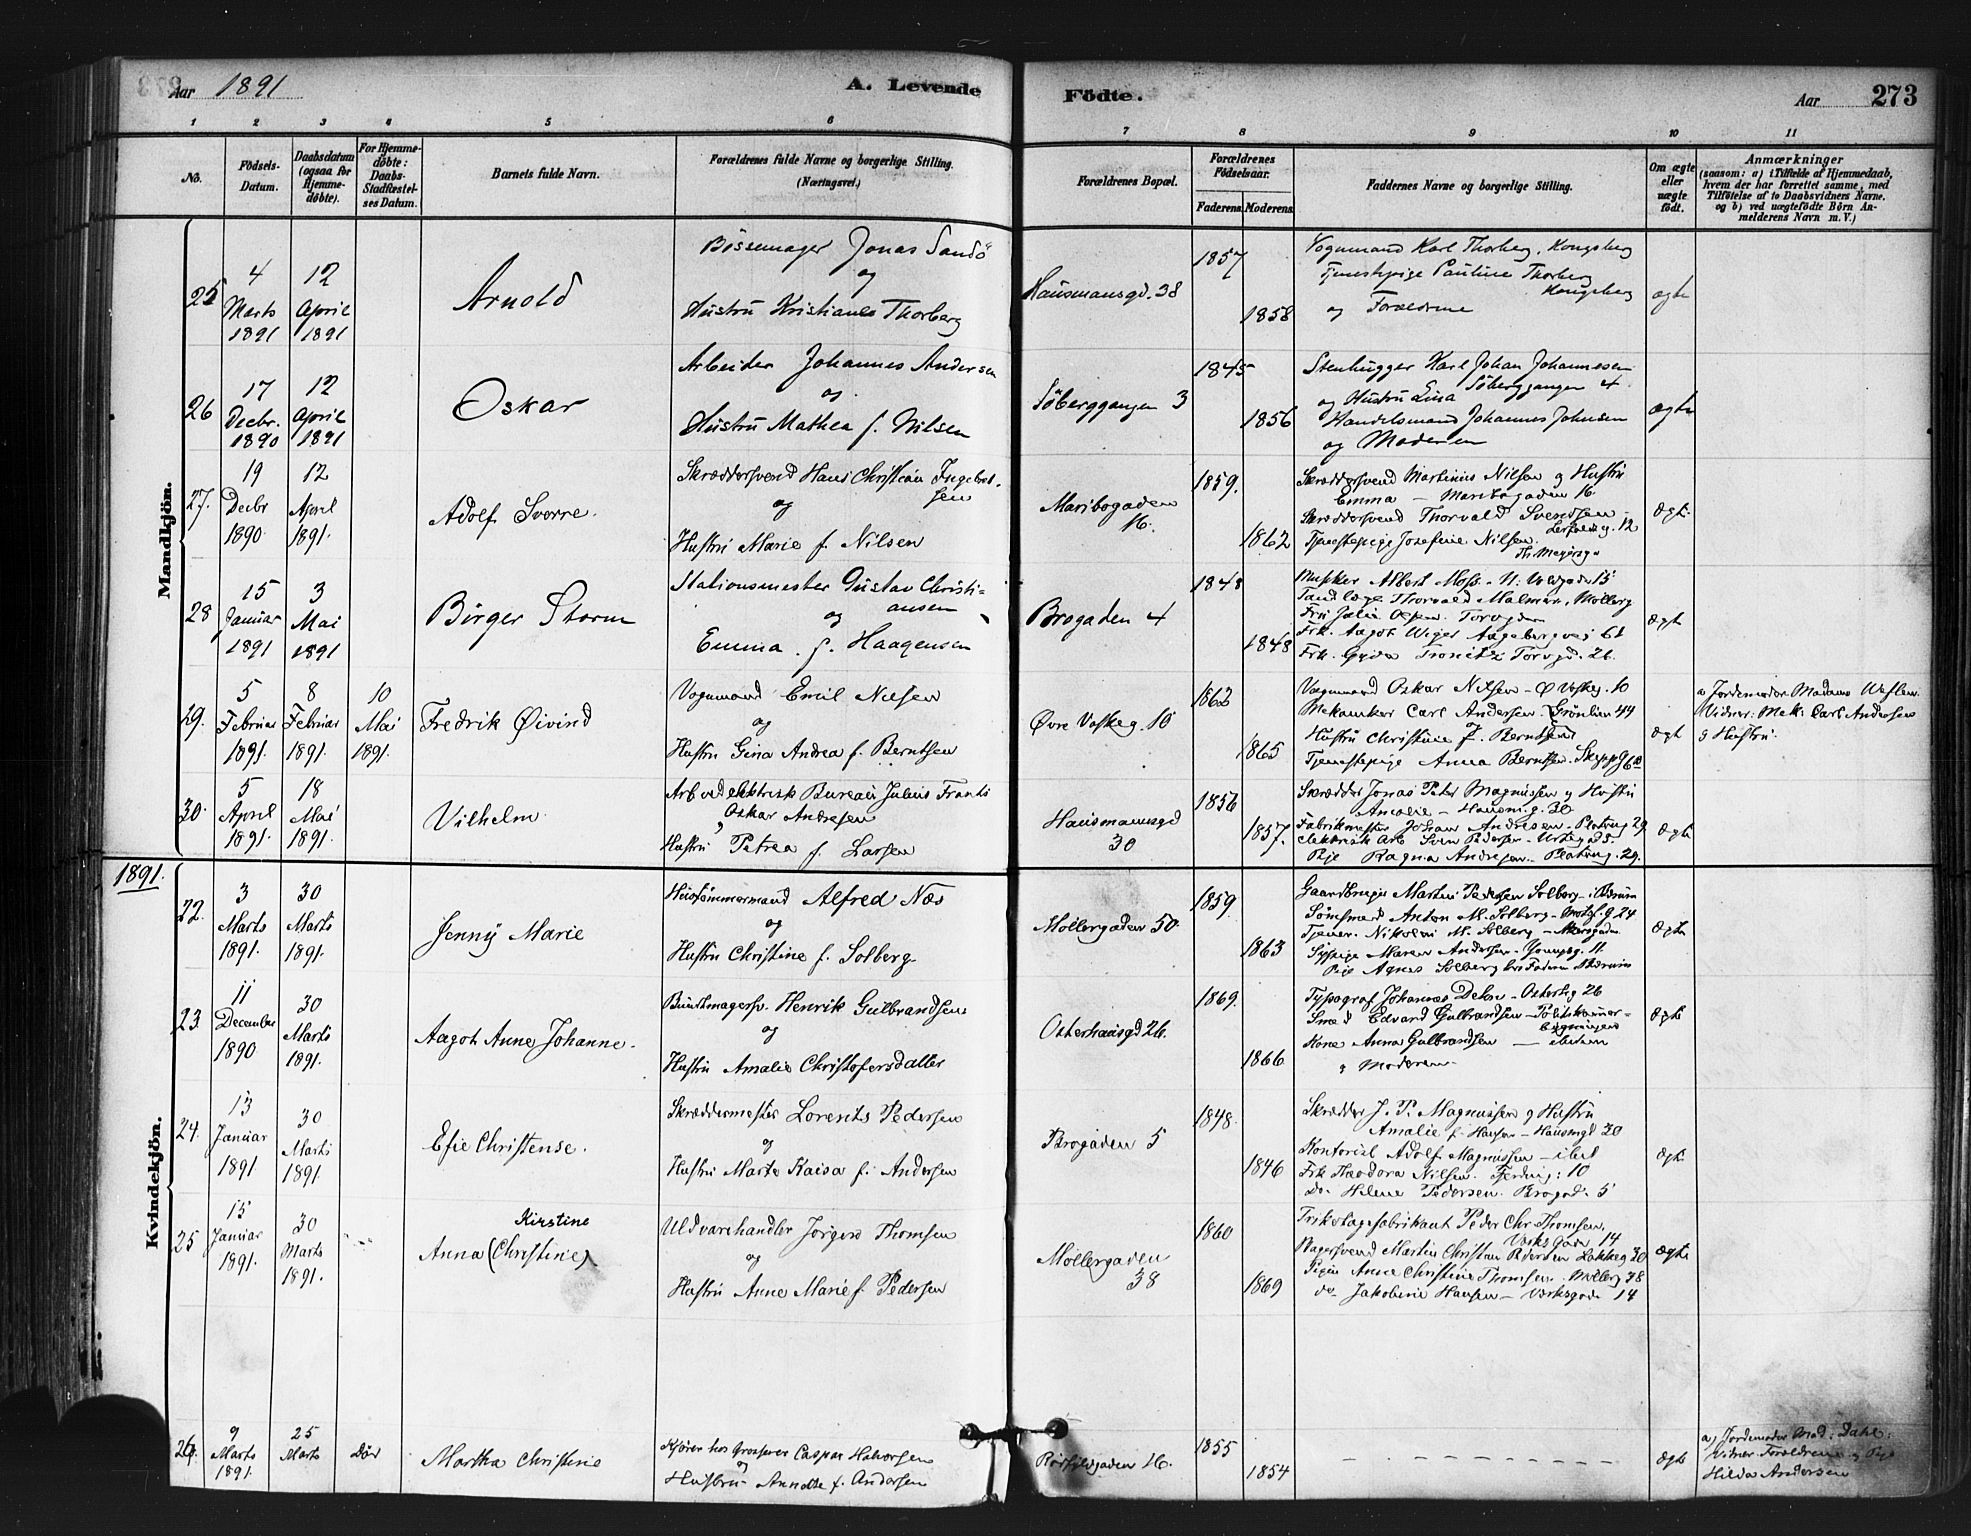 Aar 1891
A. Levende Födte.
Aar 273
1 2 3 4 5 6 7 8 9 10 11
No.
Födsels-Datum.
Daabsdatum (ogsaa for Hjemmedöbte).
For Hjemmedöbte: Daabs-Stadfæstelses Datum.
Barnets fulde Navn.
Forældrenes fulde Navne og borgerlige Stilling. (Næringsvei.)
Forældrenes Bopæl.
Forældrenes Födselsaar.
Faderens. Moderens.
Faddernes Navne og borgerlige Stilling.
Om ægte eller uægte födt.
Anmærkninger
(saasom: a) i Tilfælde af Hjemmedaab, hvem der har forrettet samme, med Tilföielse af to Daabsvidners Navne. og b) ved uægtefödte Börn Anmelderens Navn m. V.)
Mandkjön.
25 4 Marts 1891 12 April 1891
Arnold
Bössemager Jonas Sandö
og
Hustru Kristiane Thorberg
Hausmansgd. 38
1857 1858
Vognmand Karl Thorberg, Kongsberg
Tjenestepige Pauline Thorberg
Kongsberg
og Forældrene
ægte
26 17 Decbr. 1890 12 April 1891
Oskar
Arbeider Johannes Andersen
og
Hustru Mathea f. Nilsen
Söberggangen 3
1845 1856
Stenhugger Karl Johan Johannesen
og Hustru Lina Söberggangen 4
Handelsmand Johannes Johnsen
og Moderen
ægte
27. 19 Decbr 1890 12 April 1891.
Adolf Sverre.
Skræddersvend Hans Christian Ingebretsen
og
Hustru Marie f. Nilsen
Maribogaden 16.
1859. 1862
Skræddersvend Martinus Nilsen og Hustru
Emma – Maribogaden 16.
Skræddersvend Thorvald Svendsen
Tjenestepige Josefine Nilsen.
Th. Meyersg.
Ægte.
28 15 Januar 1891 3 Mai 1891
Börger Storm
Stationsmester Gustav Christiansen
og
Emma f. Haagensen
Brogaden 4
1848 1848
Musiker Albert Moss
Tandlæge Thorvald Malman, Mollerg
Frk. Aagot Wiger Aagebergvei 61
Frk. Gyda Torvgd. 26.
ægte
29. 5 Februar 1891. 8 Februar 1891. 10 Mai 1891.
Fredrik Öivind
Vognmand Emil Nilsen
og
Hustru Gina Andrea f. Berntsen
Övre Vaskeg. 10
1862 1865
Vognmand Oskar Nilsen – Ö. Vaskeg. 10
Mekaniker Carl Andersen Grönlien 44
Hustru Christine f. Berntsen
Tjenestepige Anna Berntsen.
ægte
a) Jordemoder Madame
Vidner: Mek: Carl Andersen
og Hustru.
30. 5 April 1891. 18 Mai 1891.
Vilhelm
Arb ved elektrisk Bureau Julius Frants
Oskar Andresen
Hustru Petrea f. Larsen
Hausmannsgd 30
1856 1857.
Skrædder Jonas Peter Magnussen og Hustru
Amalie – Hausmg. 30
Fabrikmester Johan Andresen – Platoug. 29.
elektrisk Arb. Sven Pedersen – Urtegad 5.
Pige Ragna Andresen – Platoug. 29.
Ægte
1891.
Kvindekjön.
22. 3 Marts 1891. 30 Marts 1891.
Jenny Marie
Hustömmermand Alfred Næs
og
Hustru Christine f. Solberg
Möllergaden 50.
1859. 1863
Gaardbruger Martin Pedersen Solberg
Anton M. Solberg 24
Tjener Nikolai M. Solberg
Sypige Maren Andersen – Youngsg. 11.
Pige Agnes Solberg hos Faderen
Ægte
23. 11 December 1890 30 Marts 1891.
Aagot Anne Johanne.
Buntmagersv. Henrik Gulbrandsen
og
Hustru Amalie Christofersdatter
Osterhausgd 26.
1869. 1866
Typograf Johannes – Osterhg 26
Smed Edvard Gulbrandsen
Kone Anna Gulbrandsen
og Moderen
Ægte
24. 13 Januar 1891 30 Marts 1891.
Efie Christense.
Skræddermester Lorents Pedersen
og
Hustru Marte Kaisa f. Andersen
Brogaden 5
1848. 1846
Skrædder J. P. Magnussen og Hustru
Amalie f. Hansen – Hausmgd 30
Kontorist Adolf Magnussen
Frk Theodora Nilsen. Fjerdingg: 10
Do. Helene Pedersen. Brogad. 5
Ægte
25 15 Januar 1891. 30 Marts 1891.
Kirstine
Anna (Christine)
Uldvarehandler Jörgen Thomsen
og
Hustru Anne Marie f. Pedersen
Möllergaden 38
1860 1869
Trikotagefabrikant Peder Chr Thomsen,
Verksgade 14
Bagersvend Martin Christian Pedersen Lakkeg 30
Pigen Anne Christine Thomsen. Mollerg 38
do Jakobine Hansen – Verksgade 14
Ægte
26. 9 Marts 1891. 25 Marts Död
Martha Christine
Kjörer hos Grosserer Caspar Halvorsen
og
Hustru Annette f. Andersen
16.
1855 1854
Ægte
a) Jordemoder Mad. Dahl.
Vidner Forældrene og Pige
Hilda Andersen